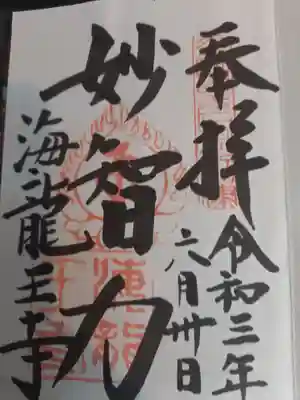 奉拝
令和三年
六月卅日
妙智力
海龍王寺